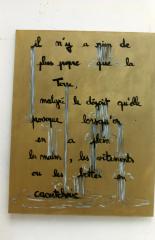 il n'y a rien de
plus propre que la
Terre,
malgré le dépôt qu'elle
provoque lorsqu'on
en a plein
les mains, les vêtements
ou les bottes en
caoutchouc